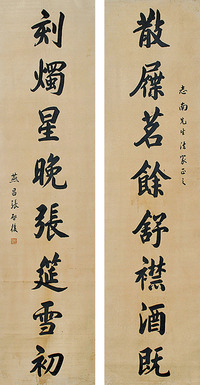 散屧茗餘舒襟酒既
志南先生法家正之
刻燭星晚張筵雪初
燕昌張啟後